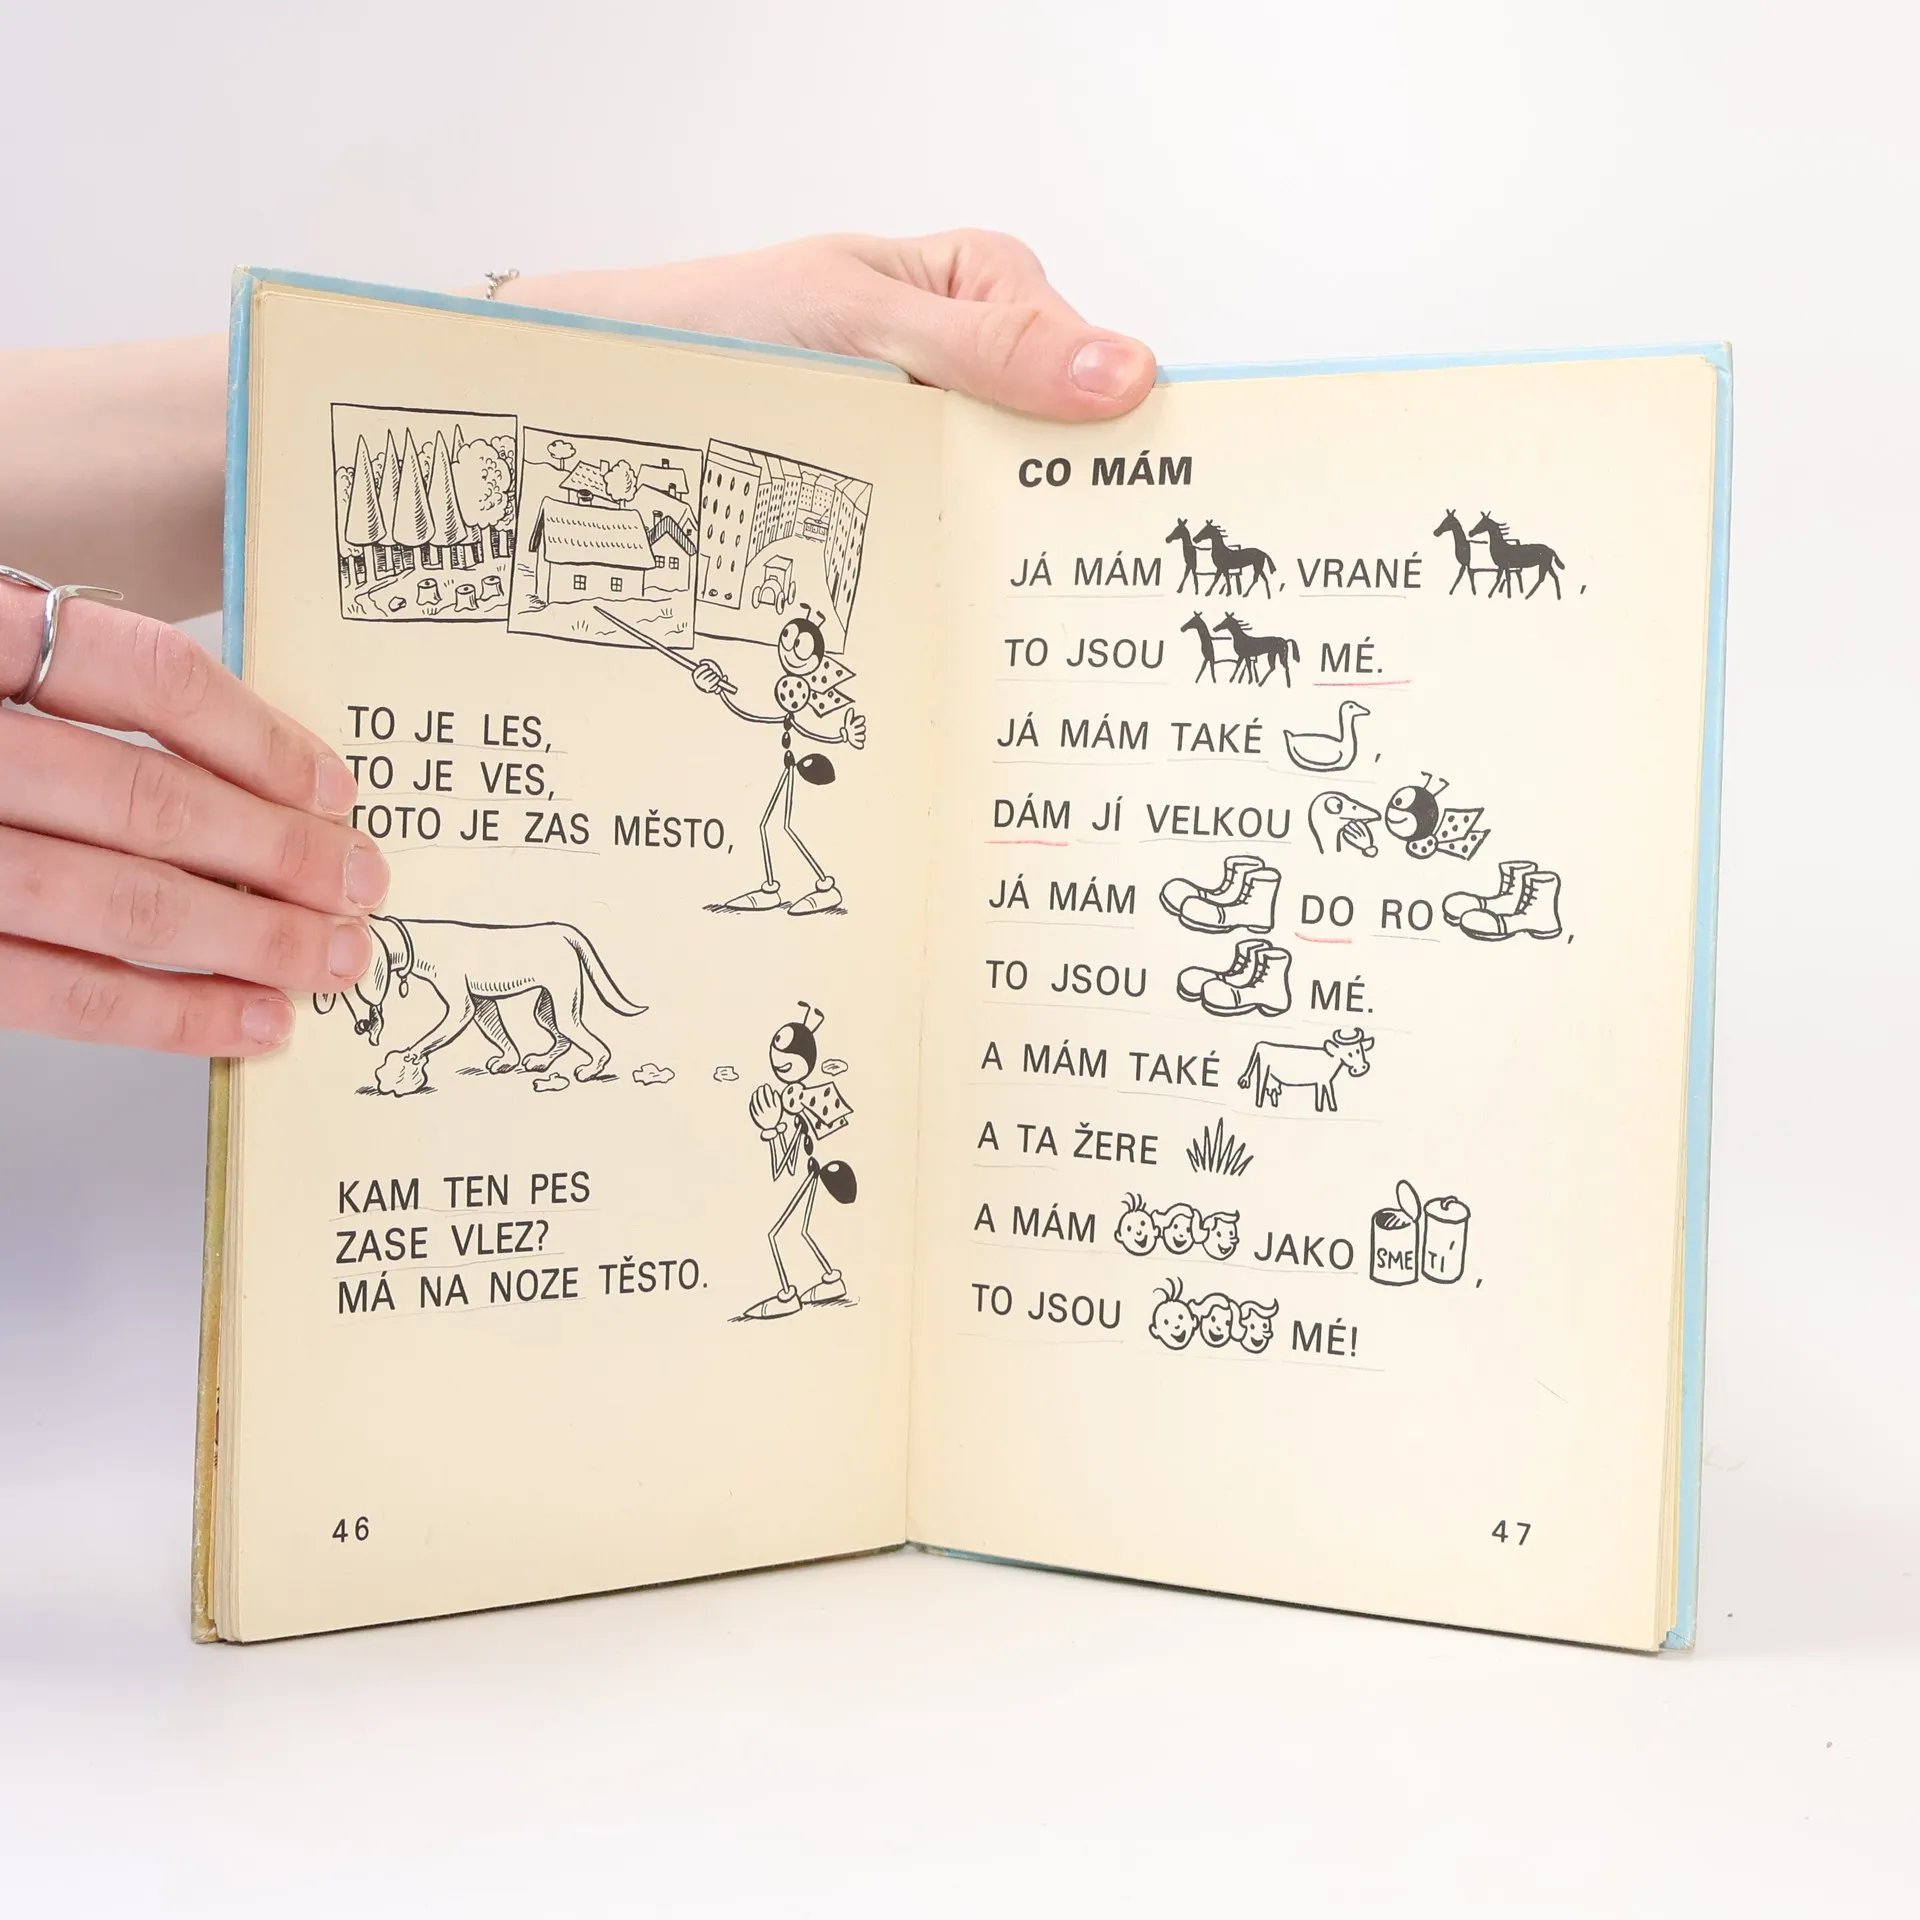 TO JE LES,
TO JE VES,
TOTO JE ZAS MĚSTO,
KAM TEN PES
ZASE VLEZ?
MÁ NA NOZE TĚSTO.
46
CO MÁM
JÁ MÁM , VRANÉ ,
TO JSOU MÉ.
JÁ MÁM TAKÉ ,
DÁM JÍ VELKOU
JÁ MÁM DO RO ,
TO JSOU MÉ.
A MÁM TAKÉ
A TA ŽERE
A MÁM JAKO SMETÍ ,
TO JSOU MÉ!
47